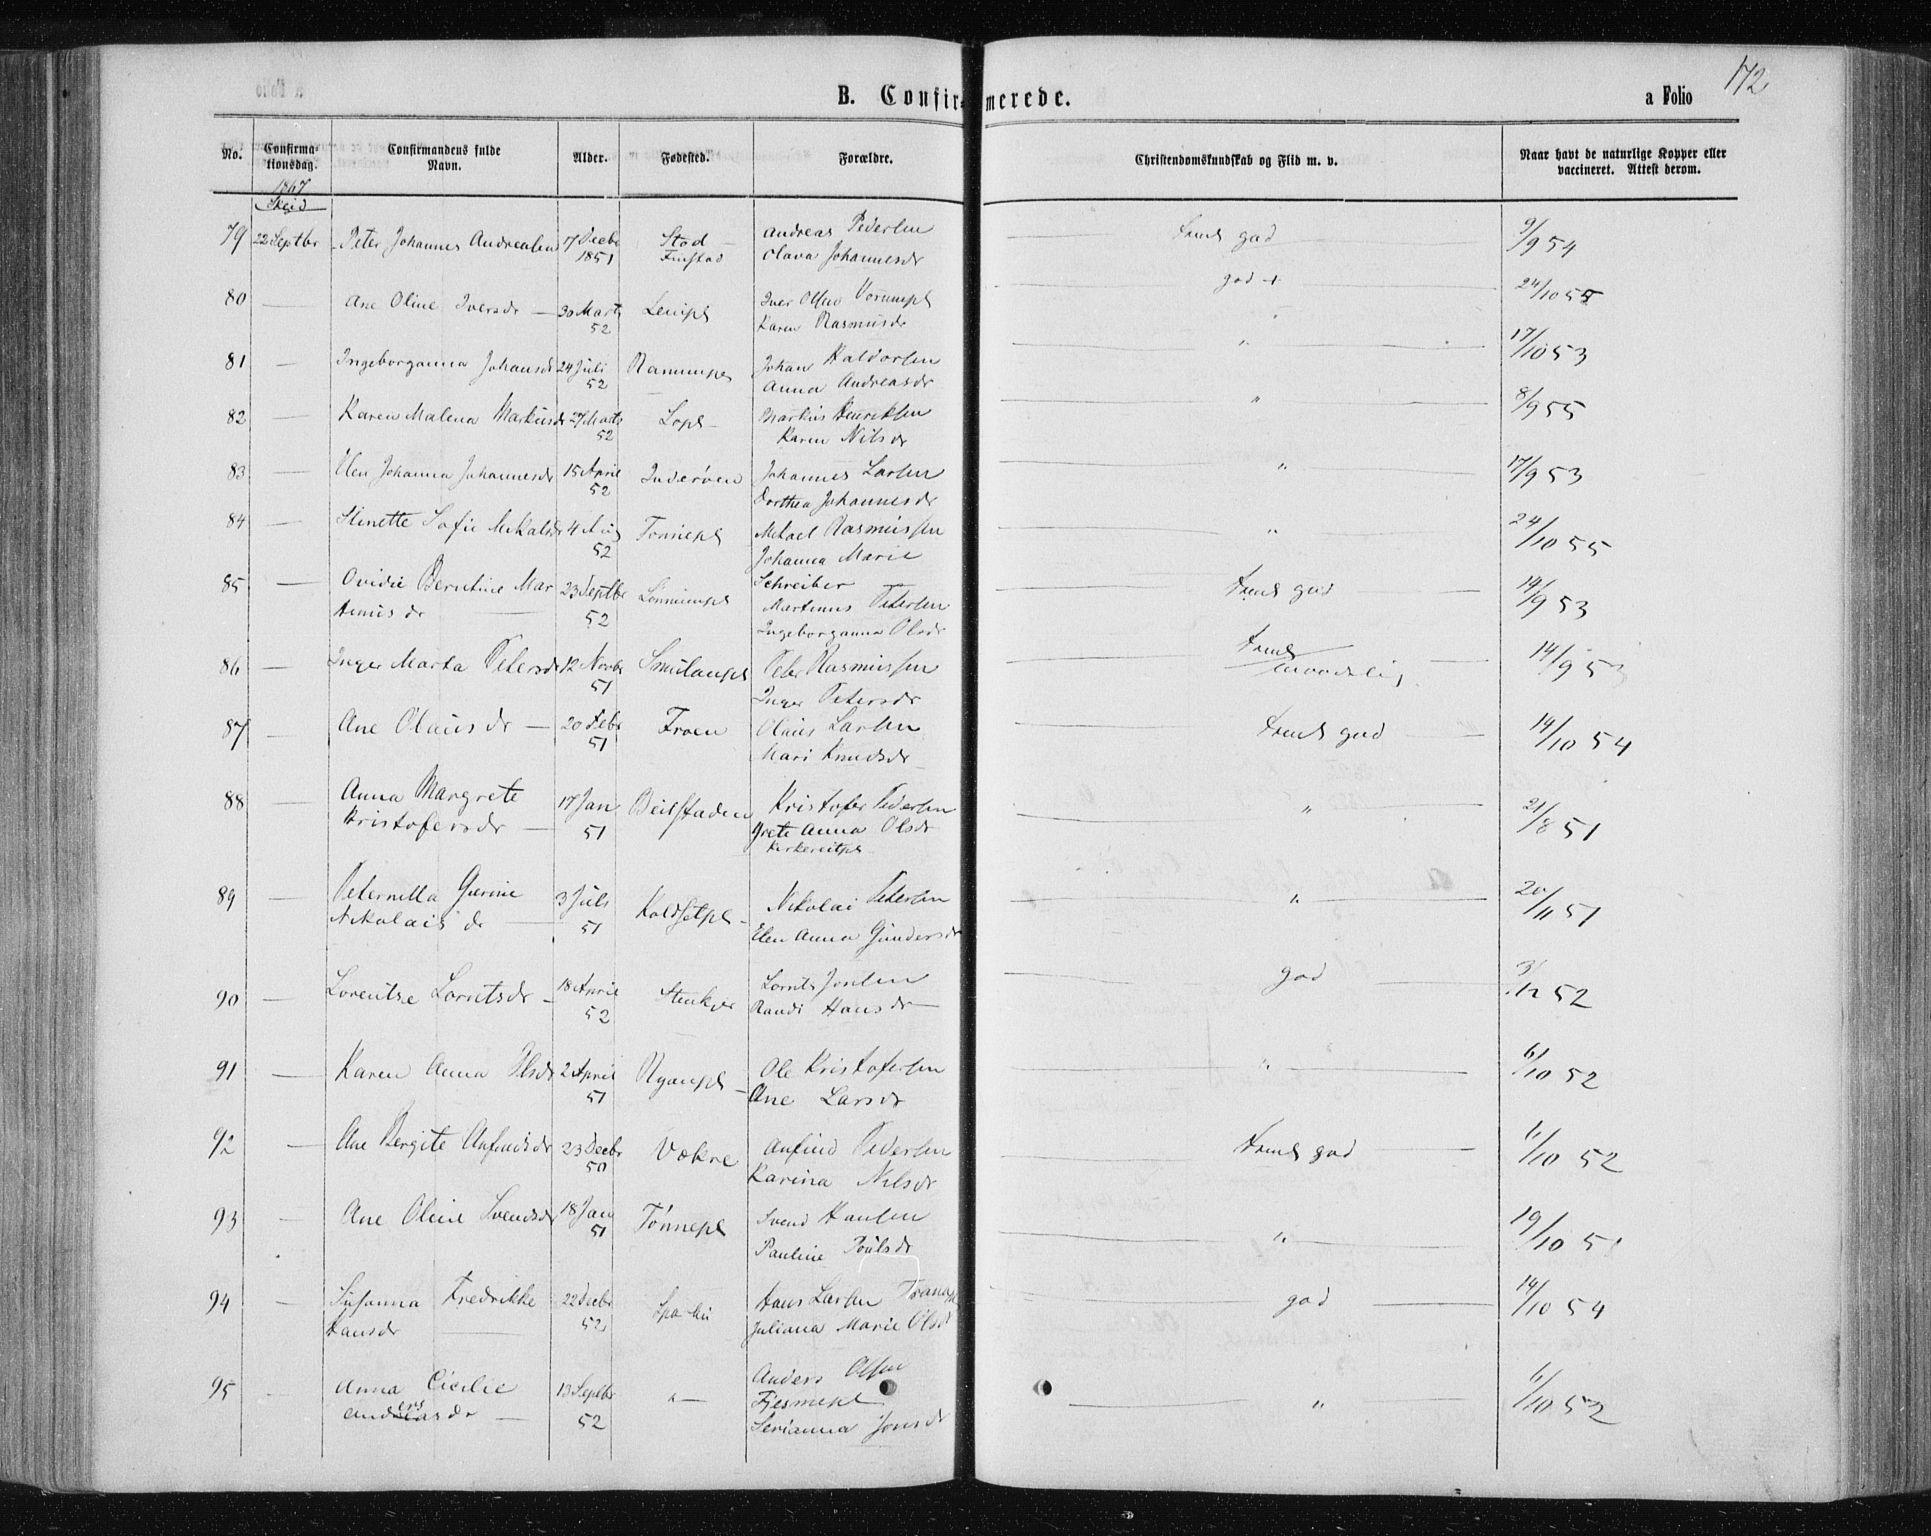 172
B. Confirmerede.
a Folio
No.
Confirma-
tionsdag.
Confirmandens fulde
Navn.
Alder.
Fødested.
Forældre.
Christendomskundskab og Flid m. v.
Naar havt de naturlige Kopper eller
vaccineret. Attest derom.
1867
79 22 Septbr Peter Johannes Andreasen 17 Decbr Stod Andreas Pedersen
1851 Finstad Olava Johannesdr
god 9/9 54
80 — Ane Oline Iversdr — 30 Marts Iver Olsen
52 Karen Rasmusdr
god + 24/10 55
81 — Ingeborganna Johansdr 24 Juli Johan Haldorsen
52 Anna Andreasdr
" 17/10 53
82 — Karen Malena Markusdr 27 Marts Markus Henriksen
52 Karen Nilsdr
" 8/9 55
83 — Elen Johanna Johannesdr 15 April Inderøen Johannes Larsen
52 Dorthea Johannesdr
" 17/9 53
84 — Sofie Mikalsdr 4 Aug Mikael Rasmussen
52 Johanna Marie
Schreiber
" 24/10 55
85 — Ovidie Berntine Mar 23 Septbr Martinus Petersen
tinusdr — 52 Ingeborganna Olsdr
god 14/9 53
86 — Inger Marta Petersdr 12 Novbr Peter Rasmussen
51 Inger Petersdr
maadelig 14/9 53
87 — Ane Olausdr — 20 Olaus Larsen
51 Mari Knudsdr
god 14/10 54
88 — Anna Margrete 17 Jan Beilstaden Kristofer Pedersen
Kristofersdr — 51 Grete Anna Olsdr
" 21/8 51
89 — Peternella Gurine 3 Juli Nikolai Petersen
Nikolaisdr — 51 Elen Anna Gundersdr
" 20/11 51
90 — Lorentse Lorntsdr — 18 April Stenkjer Lornts Jonsen
52 Randi Hansdr —
god 3/12 52
91 — Karen Anna Olsdr 2 April Ole Kristofersen
51 Ane Larsdr
" 6/10 52
92 — Ane Bergite Anfindsdr 23 Decbr Vøkre Anfind Pedersen
50 Karina Nilsdr
god 6/10 52
93 — Ane Oline Svendsdr 18 Jan Tønnepl Svend Hansen
51 Pauline Poulsdr
" 19/10 51
94 — Susanna Fredrikke 22 Decbr Hans Larsen
Hansdr — 52 Juliana Marie Olsdr
god 14/10 54
95 — Anna Cicilie 13 Septbr " — Anders Olsen
ers
Andreasdr — 52 Fjesmepl
Serianna Jonsdr
" 6/10 52